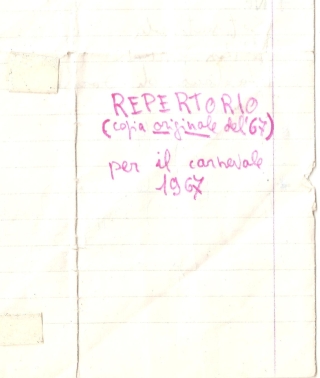 REPERTORIO
(copia originale del '67)
per il carnevale
1967